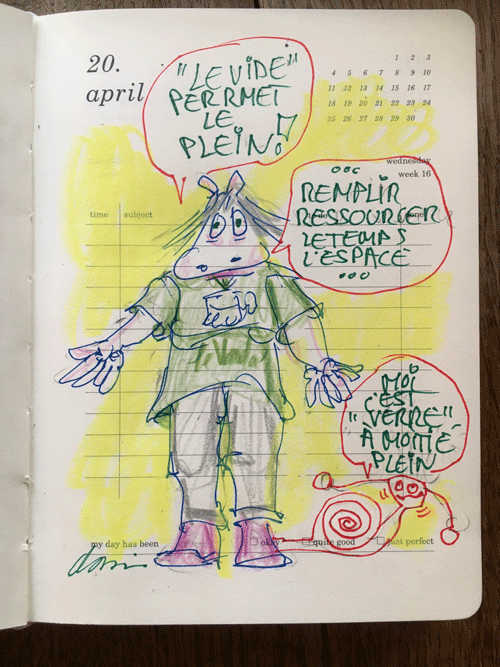 20.
april
1 2 3
4 5 6 7 8 9 10
11 12 13 14 15 16 17
18 19 20 21 22 23 24
25 26 27 28 29 30
wednesday
week 16
time subject
"LE VIDE"
PERRMET
LE
PLEIN!
...
REMPLIR
RESSOURCER
LE TEMPS
L'ESPACE
...
MOI
C'EST
"VERRE"
À MOITIÉ
PLEIN
my day has been okay quite good just perfect